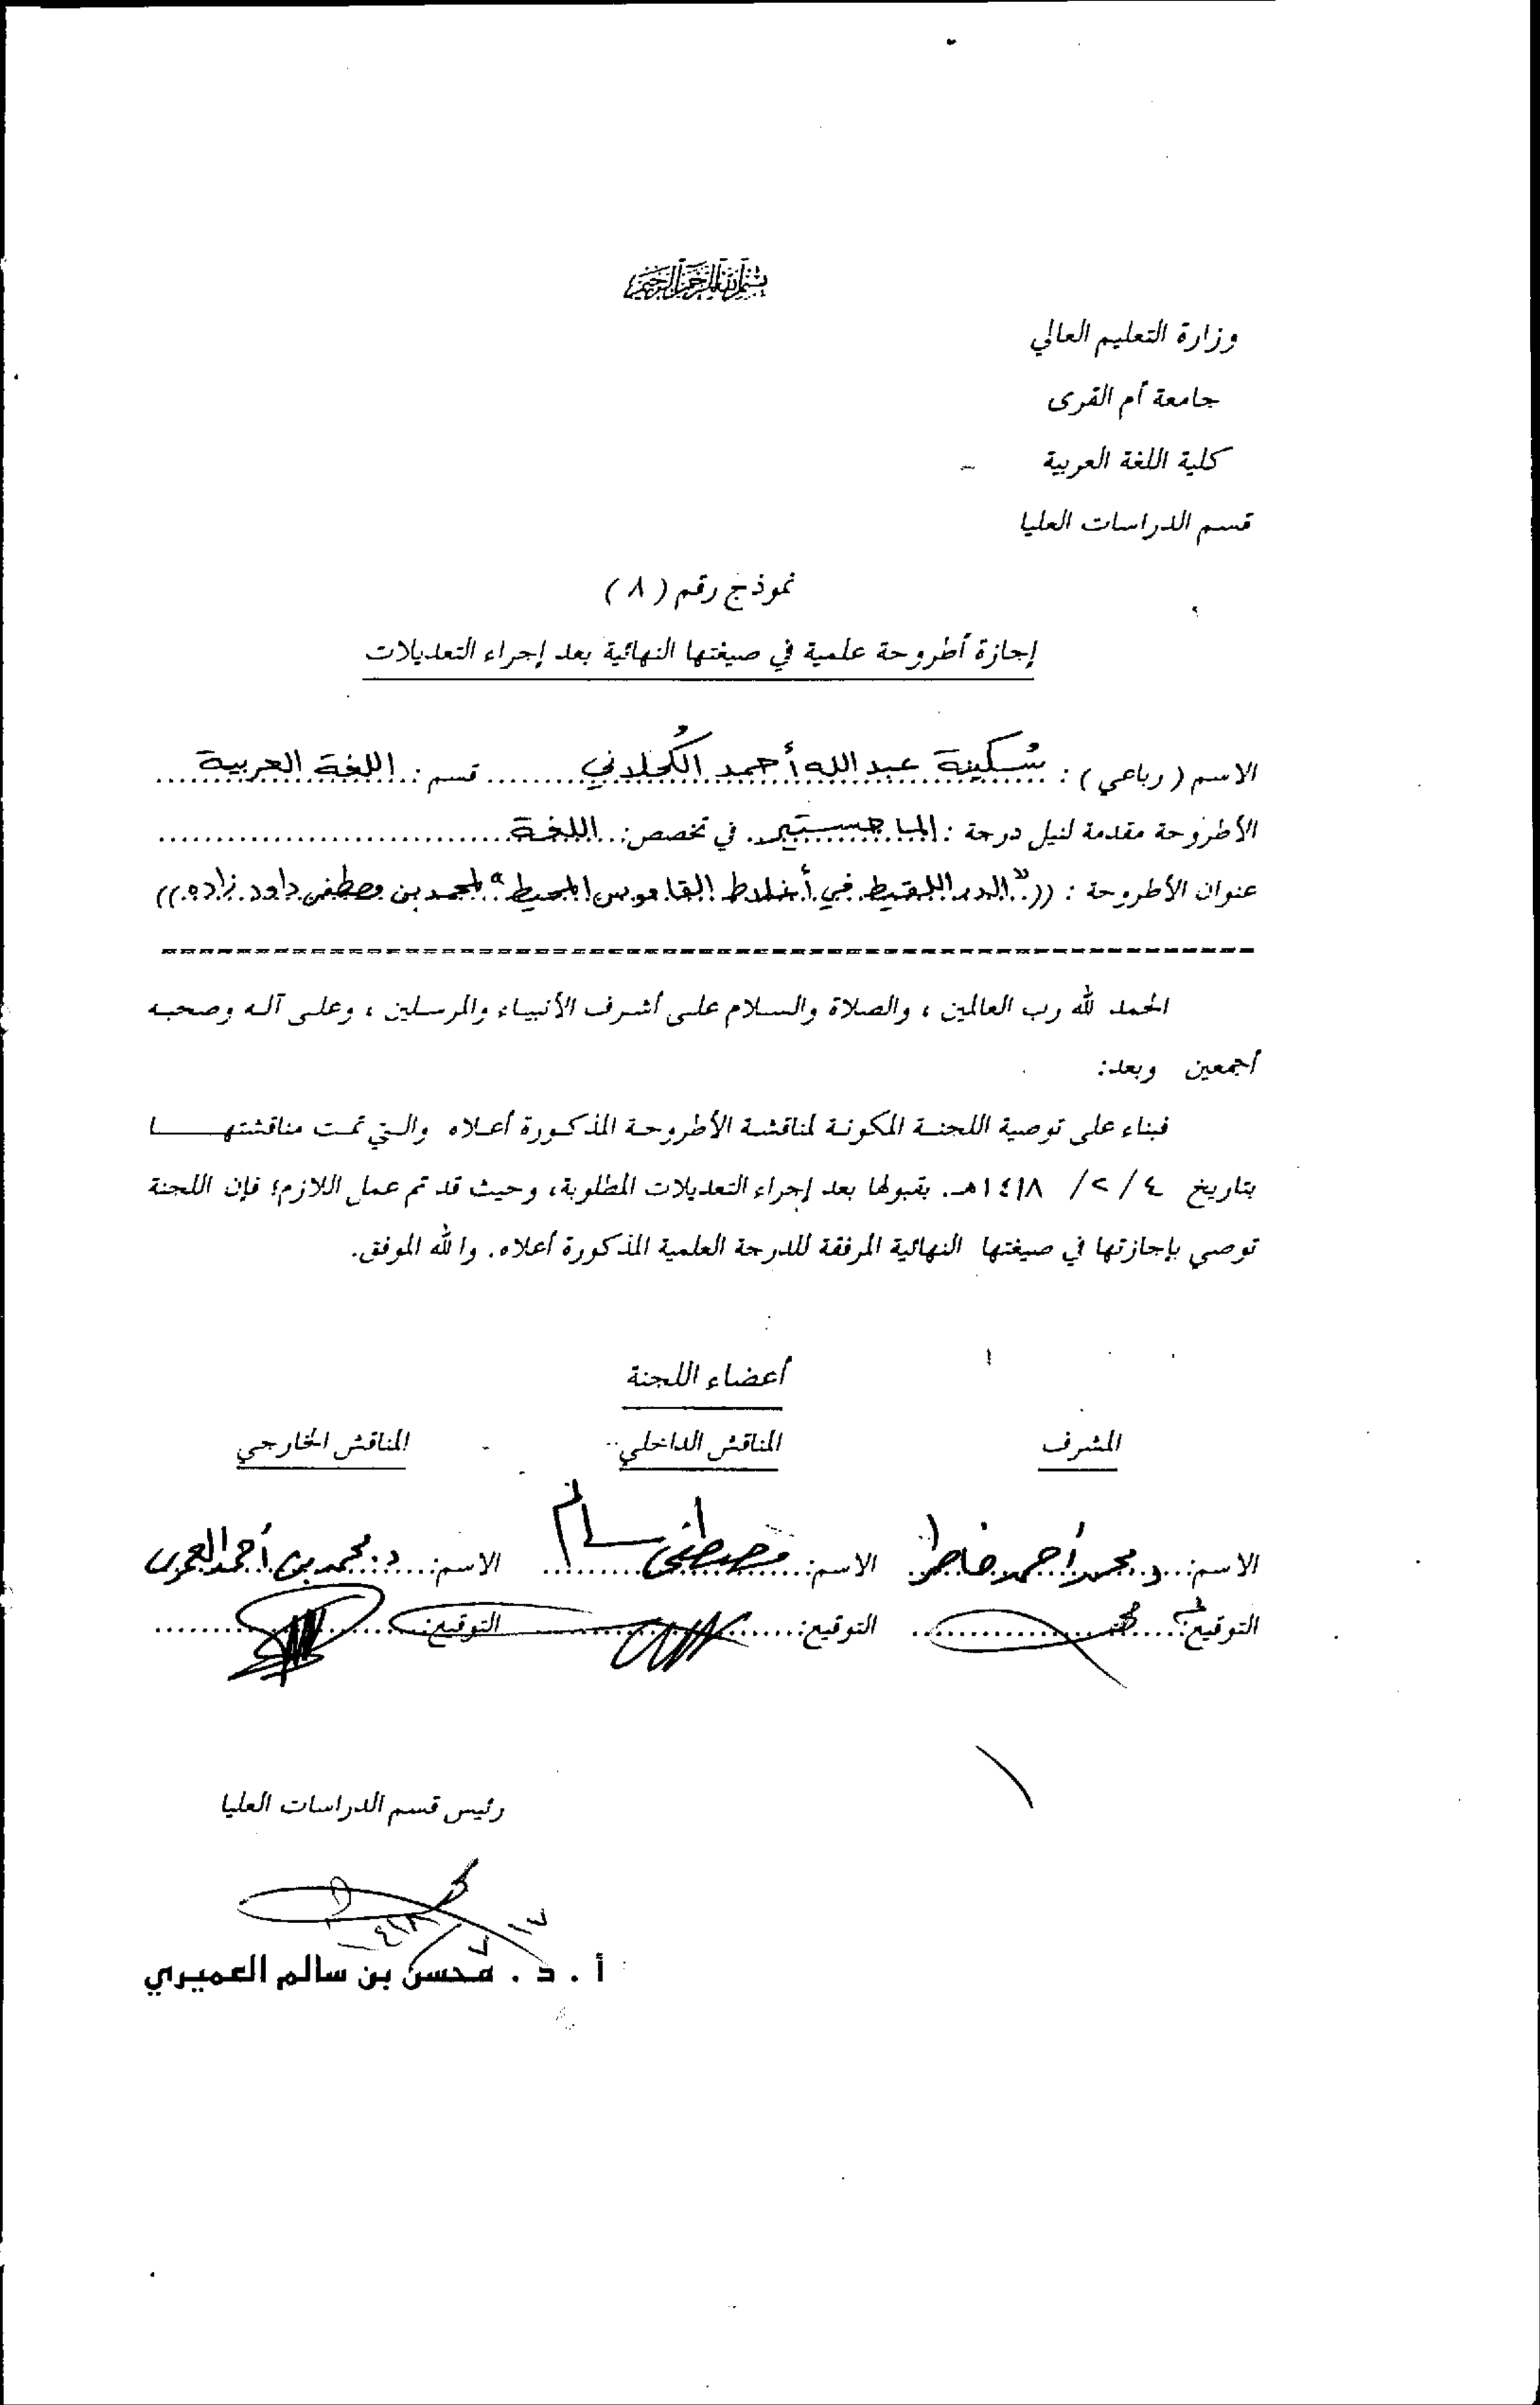 بسم الله الرحمن الرحيم
وزارة التعليم العالي
جامعة أم القرى
كلية اللغة العربية
قسم الدراسات العليا
نموذج رقم ( ٨ )
إجازة أطروحة علمية في صيغتها النهائية بعد إجراء التعديلات
الاسم ( رباعي ) : سُكينة عبد الله أحمد الكُحلاني قسم : اللغة العربية
الأطروحة مقدمة لنيل درجة : الماجستير في تخصص : اللغة
عنوان الأطروحة : (( "الدر اللقيط في أغلاط القاموس المحيط" لمحمد بن مصطفى داود زاده ))
الحمد لله رب العالمين ، والصلاة والسلام على أشرف الأنبياء والمرسلين ، وعلى آله وصحبه
أجمعين وبعد:
فبناء على توصية اللجنة المكونة لمناقشة الأطروحة المذكورة أعلاه والتي تمت مناقشتهــا
بتاريخ ٤ / ٢ / ١٤١٨هـ. بقبولها بعد إجراء التعديلات المطلوبة، وحيث قد تم عمل اللازم؛ فإن اللجنة
توصي بإجازتها في صيغتها النهائية المرفقة للدرجة العلمية المذكورة أعلاه. والله الموفق.
أعضاء اللجنة
المشرف المناقش الداخلي المناقش الخارجي
الاسم: د. محمد أحمد خاطر الاسم: مصطفى سالم الاسم: د. محمد بن أحمد العمري
التوقيع: التوقيع: التوقيع:
رئيس قسم الدراسات العليا
١٧ / ٧ / ١٤١٨
أ . د . محسن بن سالم العميري